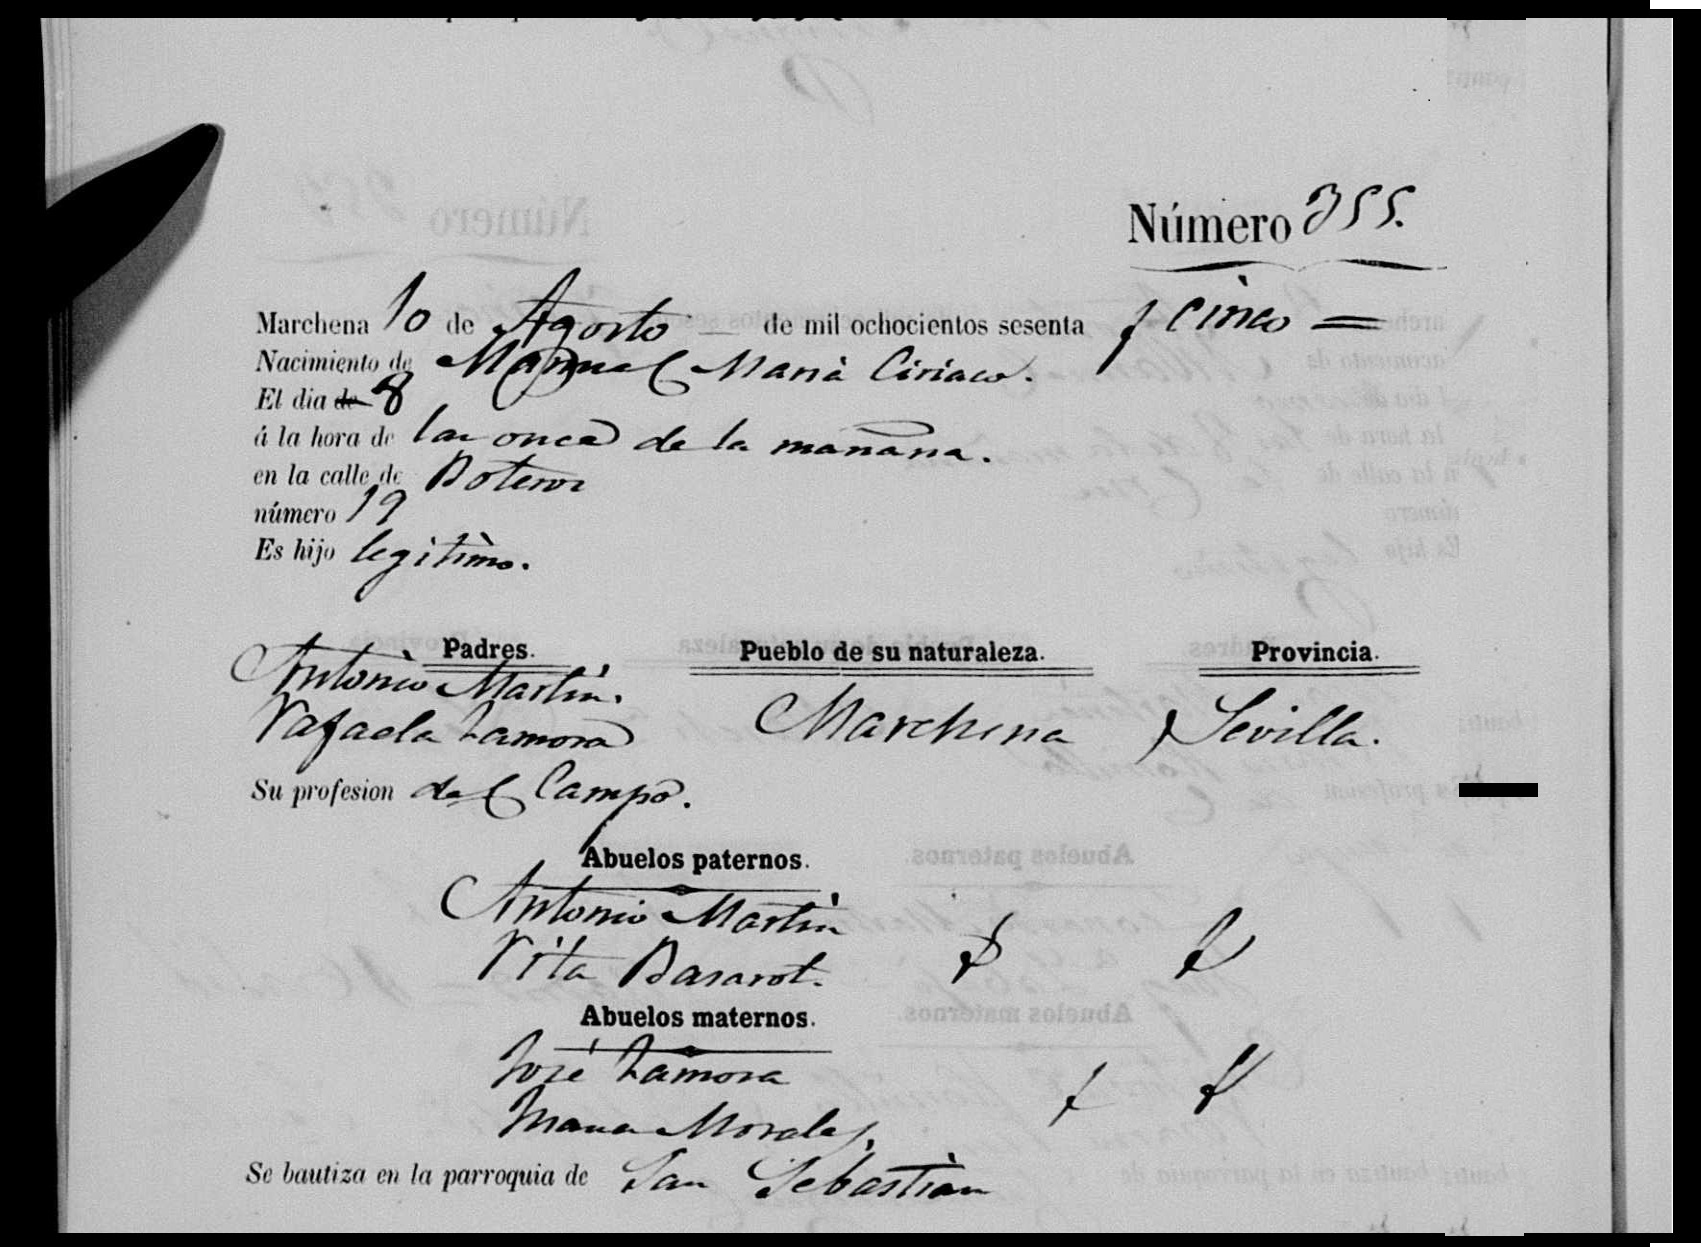 Número 355.
Marchena 10 de Agosto — de mil ochocientos sesenta y cinco =
Nacimiento de Manuel Maria Ciriaco.
El dia de 8
á la hora de las once de la mañana.
en la calle de Boteros
número 19
Es hijo legitimo.
Padres. Pueblo de su naturaleza. Provincia.
Antonio Martin.
Rafaela Zamora Marchena y Sevilla.
Su profesion del Campo.
Abuelos paternos.
Antonio Martin
Rita Basarot.
Abuelos maternos.
José Zamora
Maria Morales,
Se bautiza en la parroquia de San Sebastian